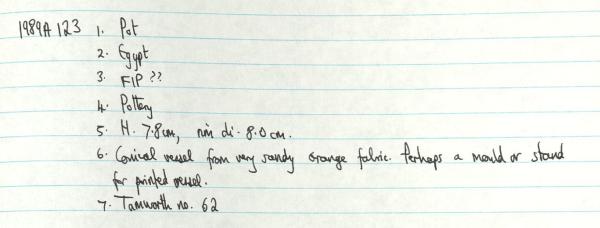 1989A 123 1. Pot
2. Egypt
3. FIP ??
4. Pottery
5. H. 7.8cm, rim di. 8.0cm.
6. Conical vessel from very sandy orange fabric. Perhaps a mould or stand
for printed vessel.
7. Tamworth no. 62